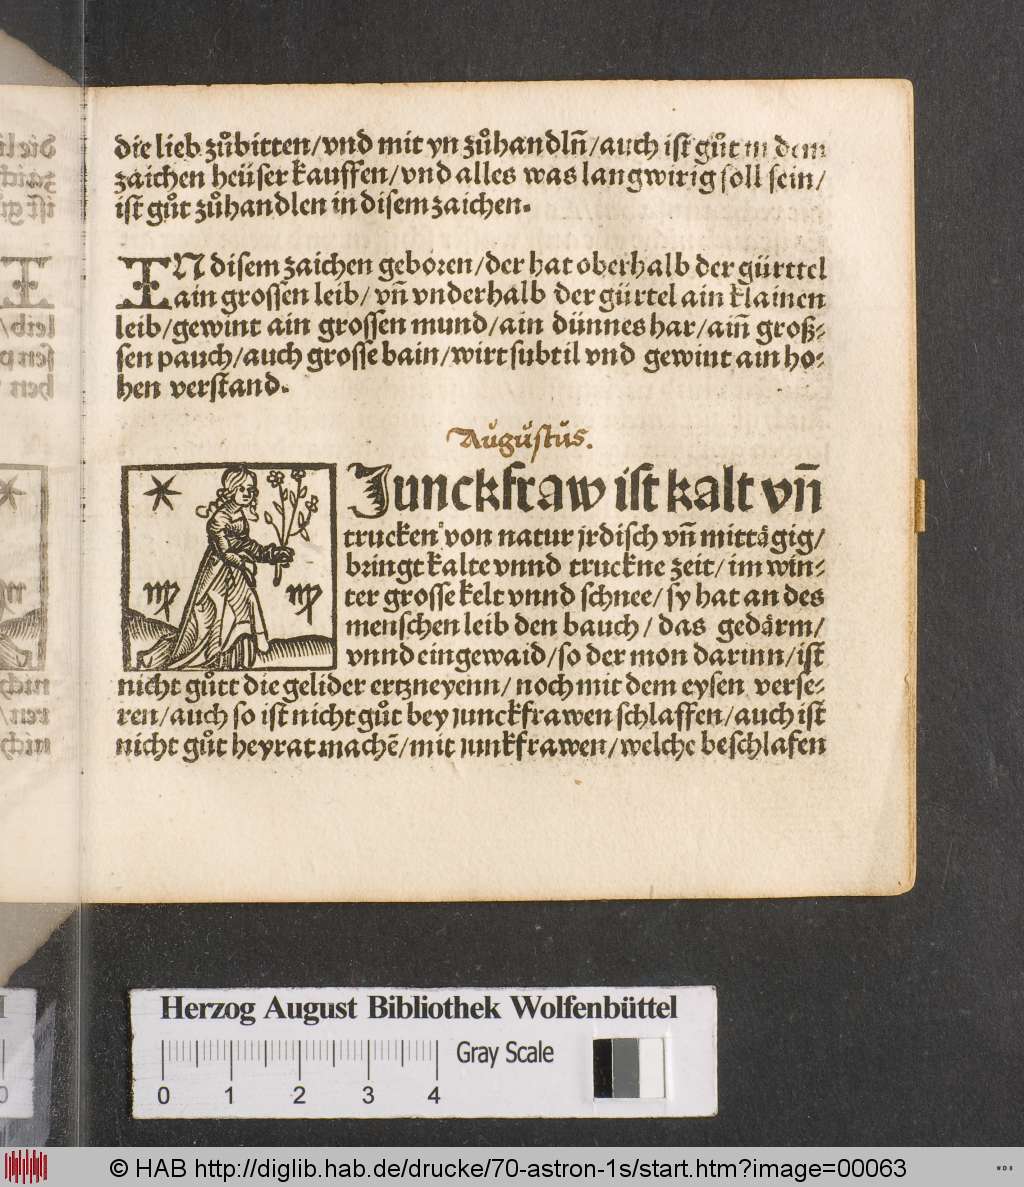 die lieb zůbitten/vnd mit yn zůhandln̄/auch ist gůt in dem
zaichen heüser kauffen/vnd alles was langwirig soll sein/
ist gůt zůhandlen in disem zaichen.
IN disem zaichen geboren/der hat oberhalb der gürttel
ain grossen leib/vn̄ vnderhalb der gürtel ain klainen
leib/gewint ain grossen mund/ain dünnes har/ain̄ groß⸗
sen pauch/auch grosse bain/wirt subtil vnd gewint ain ho⸗
hen verstand.
Aůgůstůs.
Junckfraw ist kalt vn̄
trucken von natur jrdisch vn̄ mittägig/
bringt kalte vnnd truckne zeit/im win⸗
ter grosse kelt vnnd schnee/sy hat an des
menschen leib den bauch/das gedärm/
vnnd eingewaid/so der mon darinn/ist
nicht gůtt die gelider ertzneyenn/noch mit dem eysen verse⸗
ren/auch so ist nicht gůt bey junckfrawen schlaffen/auch ist
nicht gůt heyrat machē/mit junkfrawen/welche beschlafen
Herzog August Bibliothek Wolfenbüttel
Gray Scale
0 1 2 3 4
© HAB http://diglib.hab.de/drucke/70-astron-1s/start.htm?image=00063